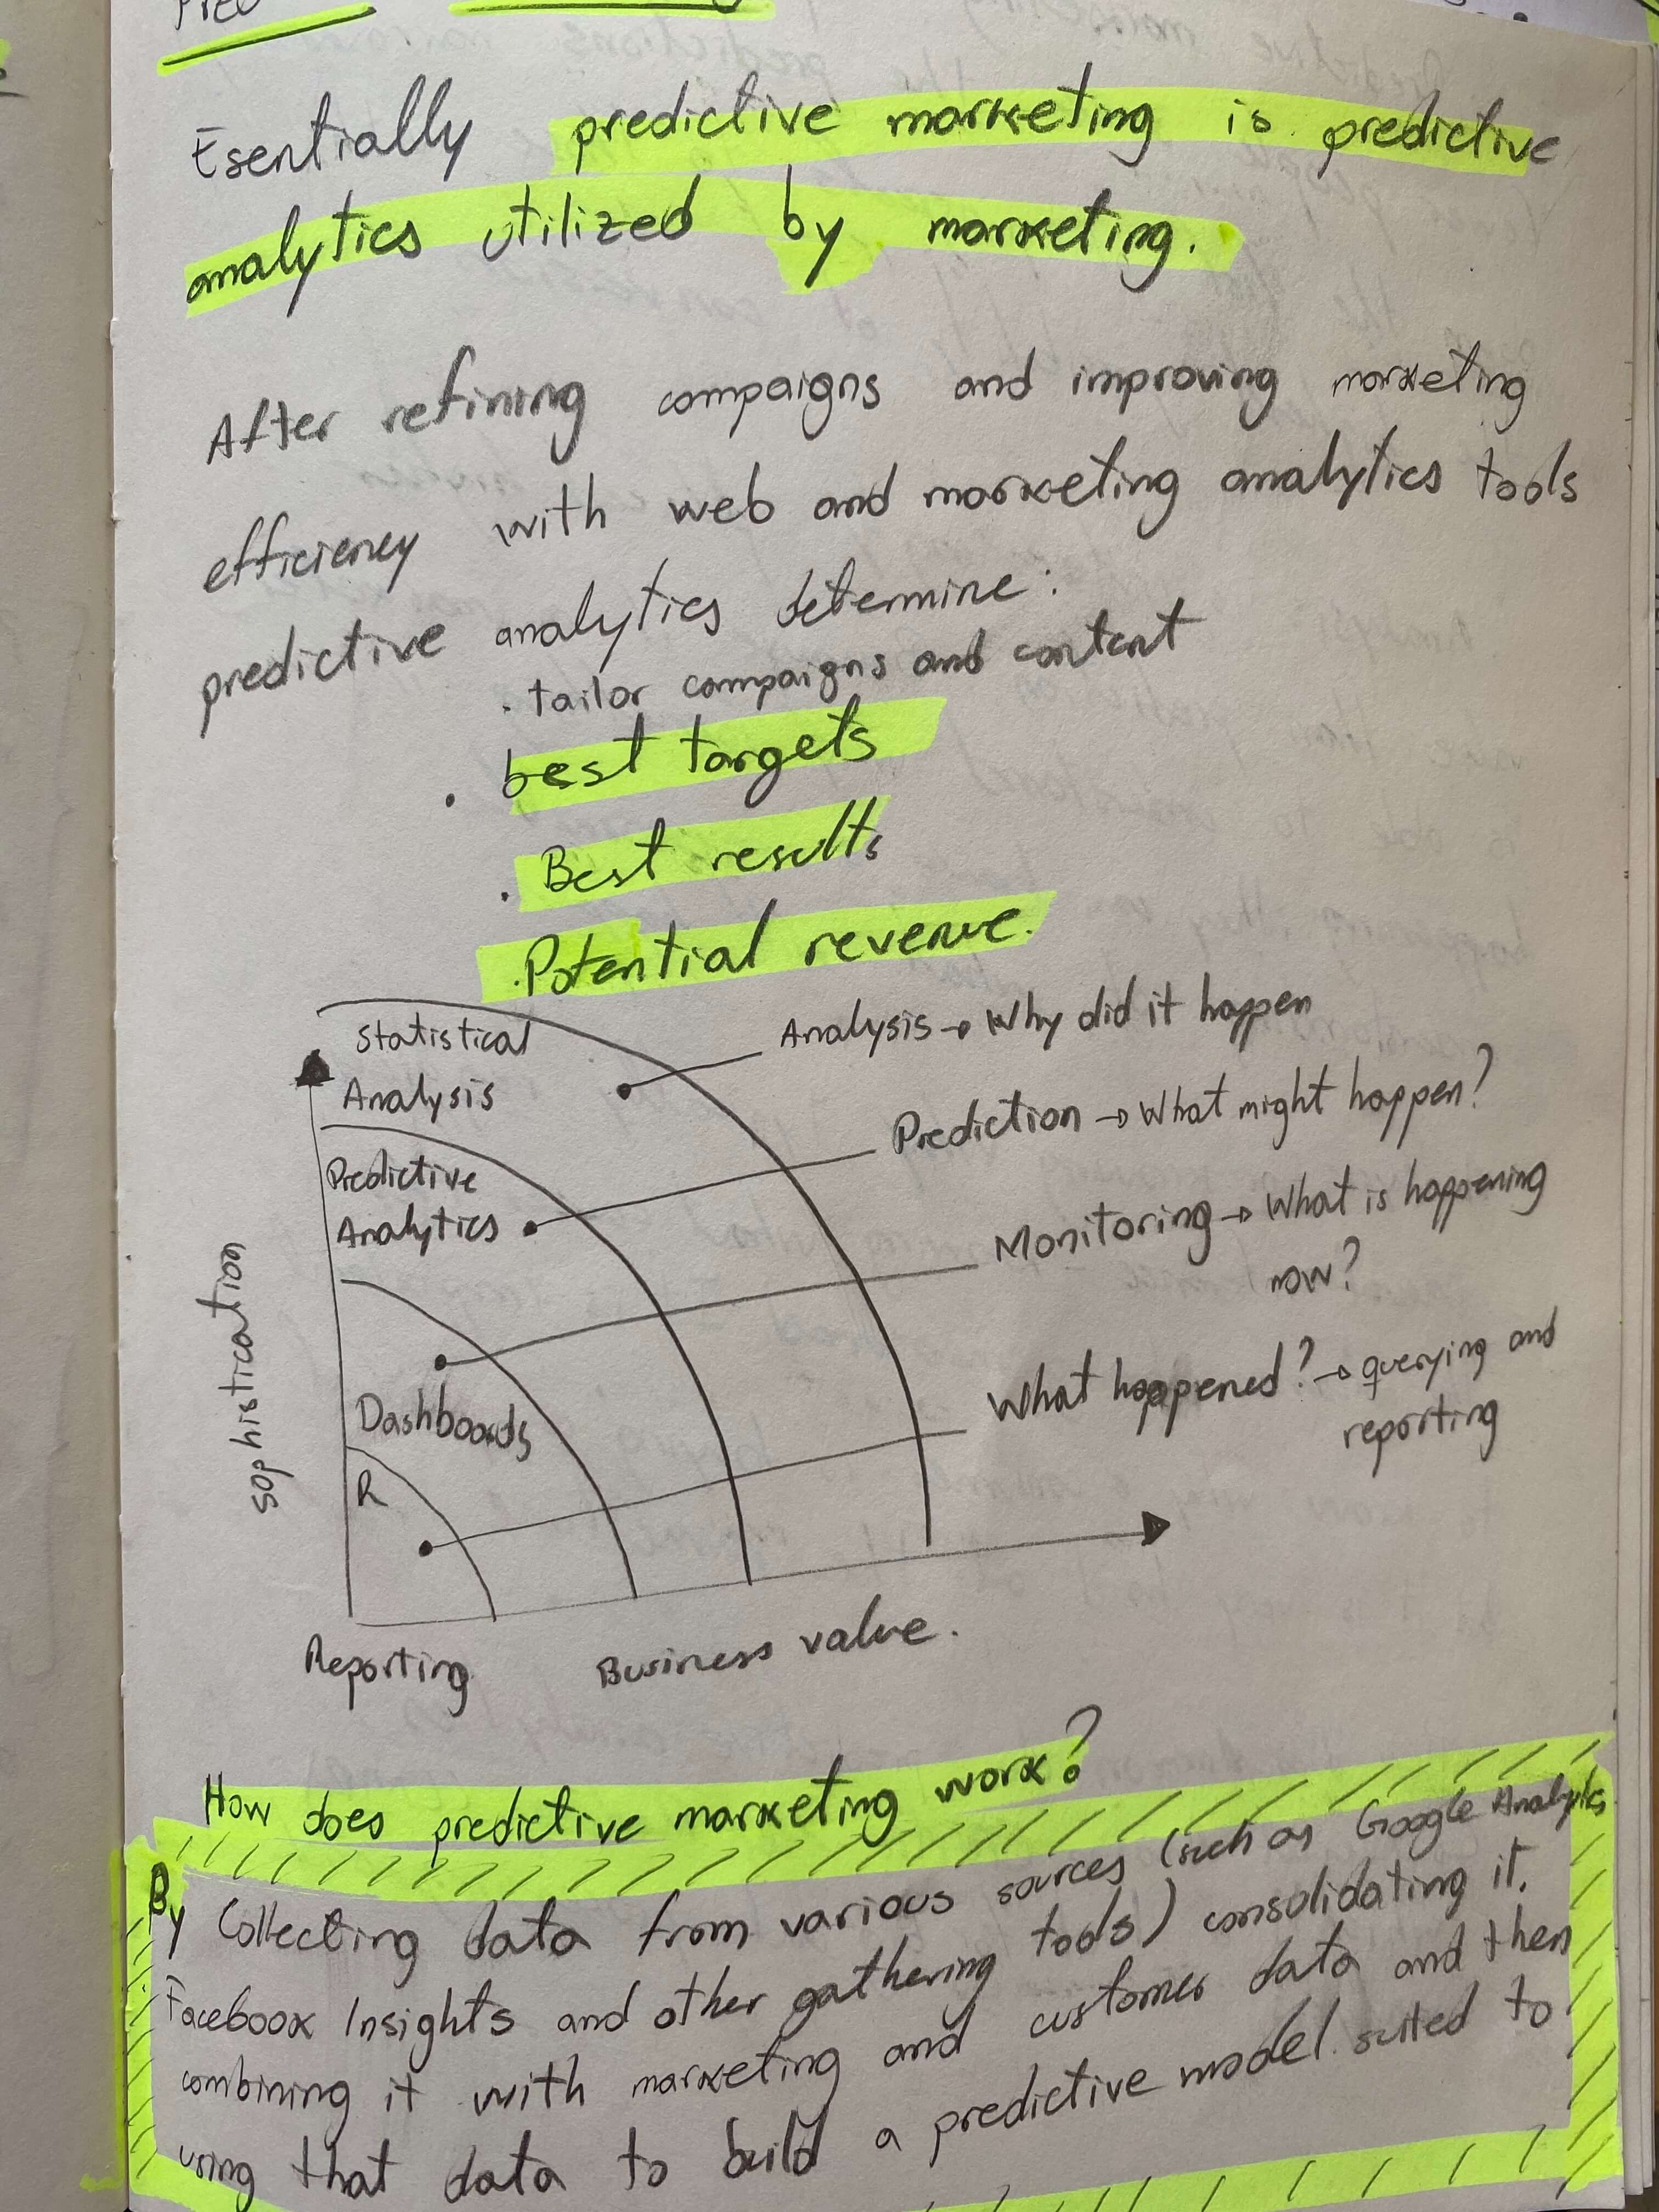 Esentially predictive marketing is predictive
analytics utilized by marketing.
After refining campaigns and improving marketing
efficiency with web and marketing analytics tools
predictive analytics determine:
. tailor campaigns and content
. best targets
. Best results
. Potential revenue.
Statistical
Analysis
Analysis → Why did it happen
Predictive
Analytics
Prediction → What might happen?
Monitoring → What is happening
now?
Dashboards
What happened? → querying and
reporting
R
sophistication
Reporting
Business value.
How does predictive marketing work?
By Collecting data from various sources (such as Google Analytics
Facebook Insights and other gathering tools) consolidating it.
combining it with marketing and customer data and then
using that data to build a predictive model suited to